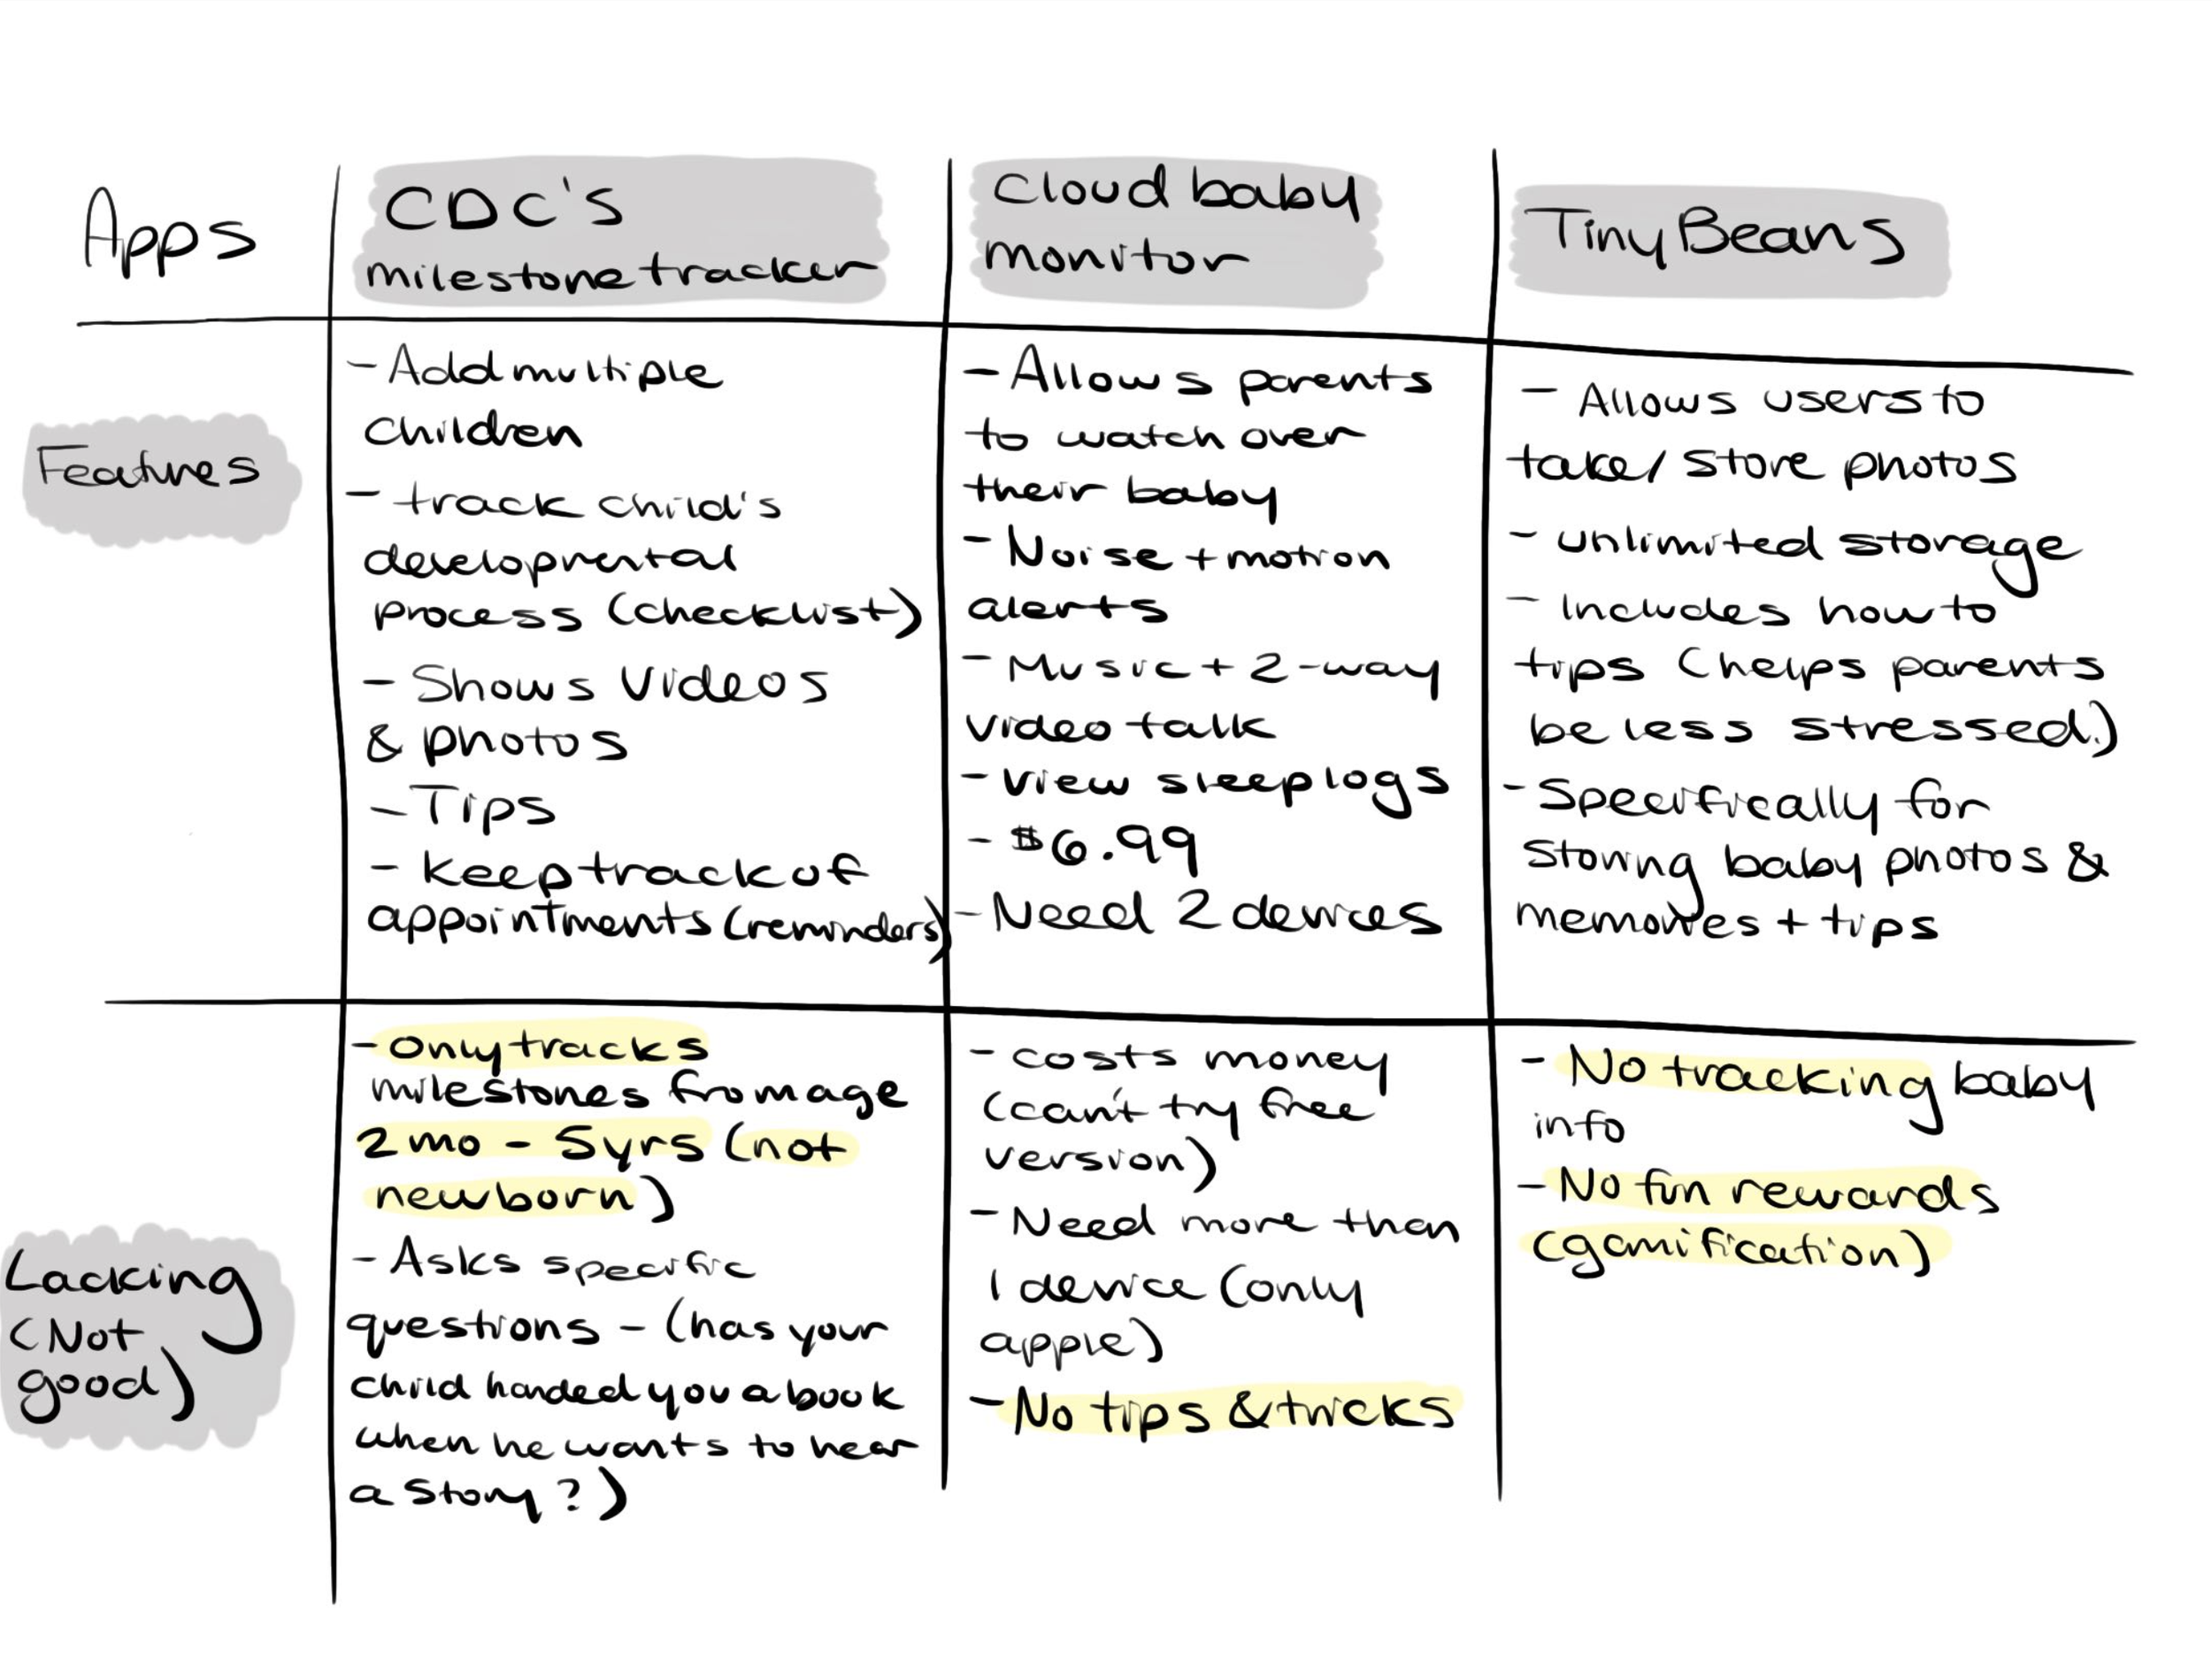 Apps
CDC's
milestone tracker
Cloud baby
monitor
Tiny Beans
Features
- Add multiple
children
- track child's
developmental
process (checklist)
- Shows videos
& photos
- Tips
- keep track of
appointments (reminders)
- Allows parents
to watch over
their baby
- Noise + motion
alerts
- Music + 2-way
video talk
- view sleep logs
- $6.99
- Need 2 devices
- Allows users to
take/ store photos
- unlimited storage
- Includes how to
tips (helps parents
be less stressed.)
- Specifically for
storing baby photos &
memories + tips
Lacking
(Not
good)
- only tracks
milestones from age
2 mo - 5yrs (not
newborn)
- Asks specific
questions - (has your
child handed you a book
when he wants to hear
a story?)
- costs money
(can't try free
version)
- Need more than
1 device (only
apple)
- No tips & tricks
- No tracking baby
info
- No fun rewards
(gamification)